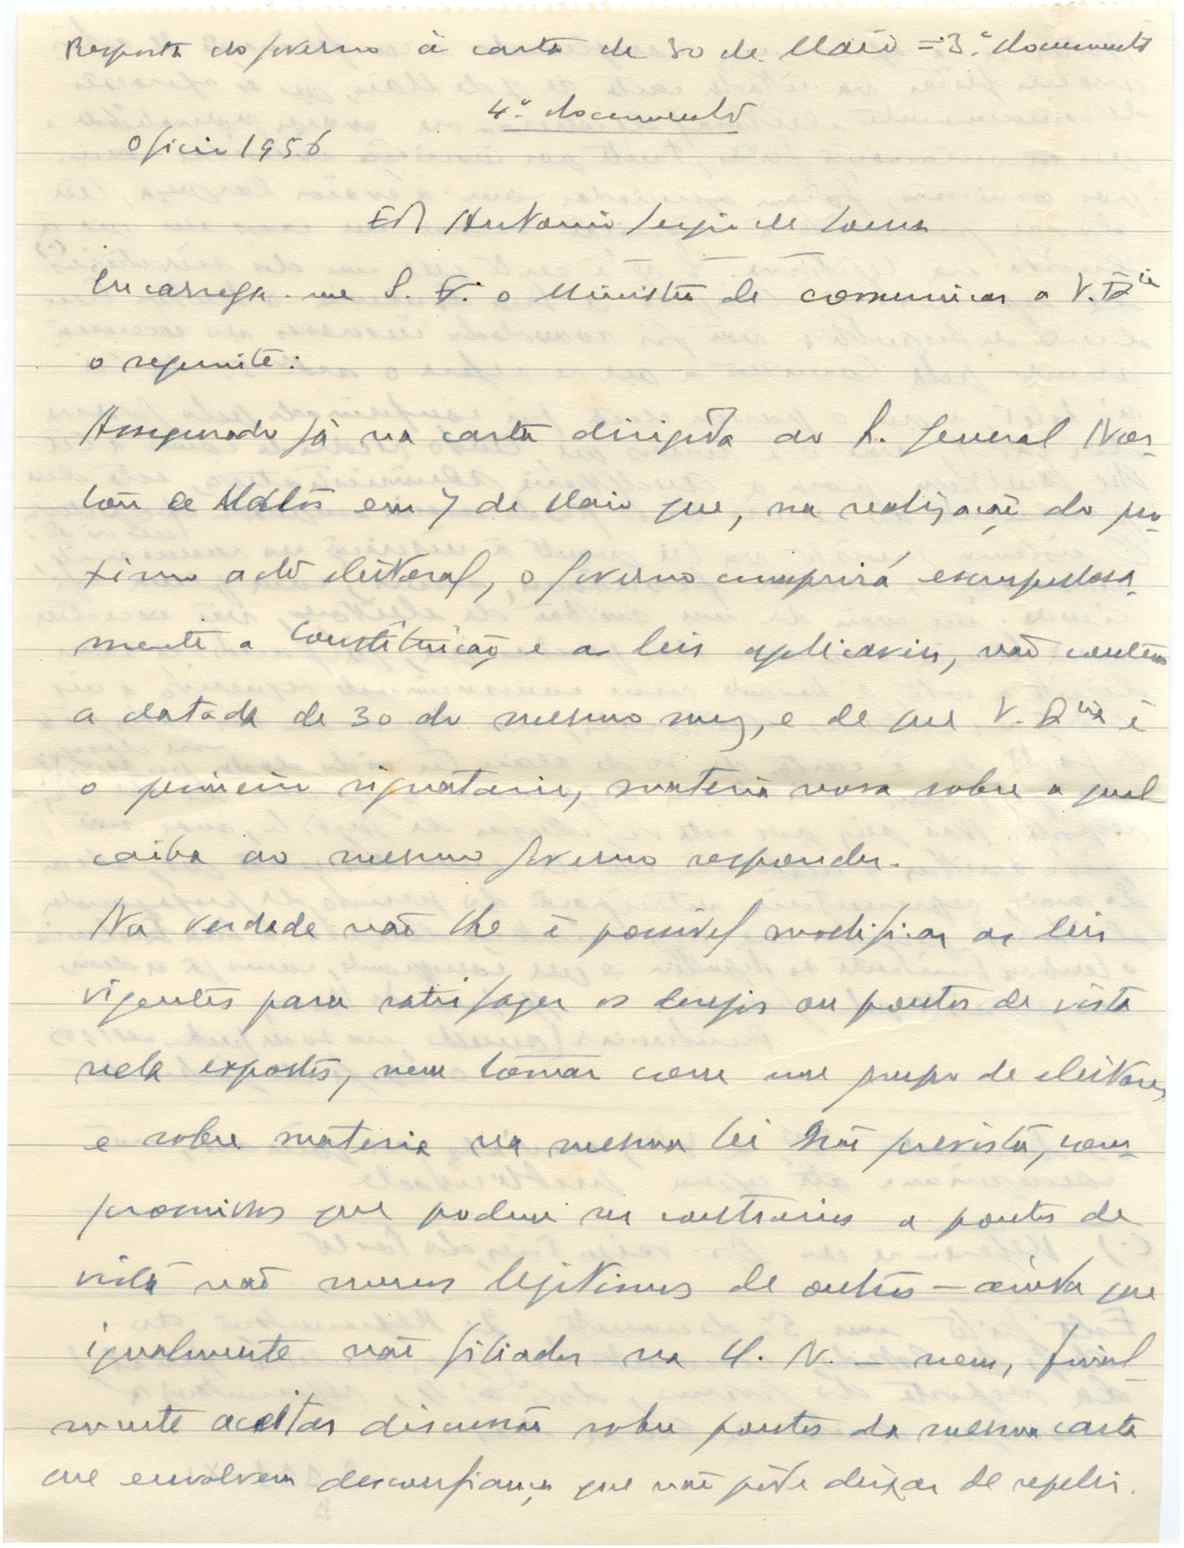 Resposta do Governo à carta de 30 de Maio = 3.º documento
4.º documento
Oficio 1956
António Sergio de Sousa
Encarrega-me S. E. o Ministro de comunicar a V. Excia
o seguinte:
Assegurado já na carta dirigida ao S. General Nor-
ton de Matos em 7 de Maio que, na realização do pro-
ximo acto eleitoral, o Governo cumprirá escrupulosa-
mente a Constituição e as leis aplicaveis, não contem
a datada de 30 do mesmo mez, e de que V. Excia é
o primeiro signatario, materia nova sobre a qual
caiba ao mesmo Governo responder.
Na verdade não lhe é possivel modificar as leis
vigentes para satisfazer os desejos ou pontos de vista
nela expostos, nem tomar com um grupo de eleitores,
e sobre materia na mesma lei não prevista, com-
promissos que podem ser contrarios a pontos de
vista não menos legitimos de outros — ainda que
igualmente não filiados na U. N. — nem, final-
mente aceitar discussão sobre pontos da mesma carta
que envolvem desconfiança que não póde deixar de repelir.